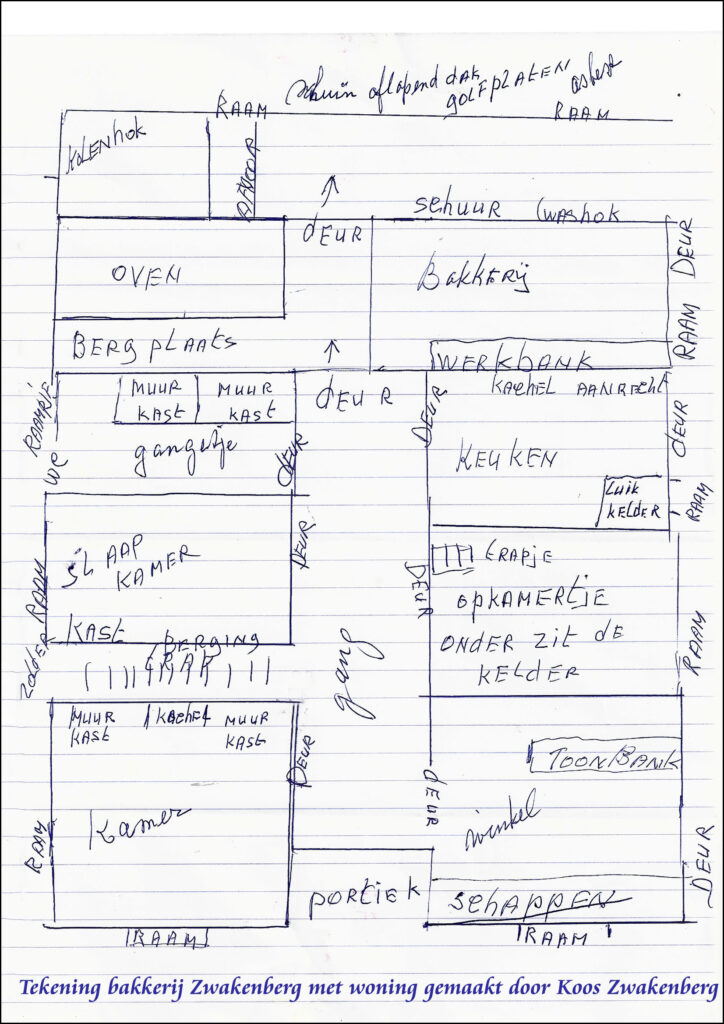 schuin aflopend dak
golfplaten asbest
RAAM
RAAM
KOLENHOK
schuur (washok
dEUR
DEUR
OVEN
BakkERij
RAAM
BERGplaats
WERKbANK
MUUR KAST
MUUR KAST
dEUR
kachel AANRECHT
DEUR
dEUR
gangetje
DEUR
WC
KEUKEN
Luik
KELdER
RAAM
SLAAP
KAMER
DEUR
RAAM
DEUR
tRAPje
opkamertje
ONdER zit dE
KELdER
RAAM
KAST
BERGING
tRAP
zoldER
gang
MUUR
KAST
kachel
MUUR
KAST
DEUR
dEUR
TOONBANK
Kamer
winkel
RAAM
DEUR
poRtiEK
schAPPEN
RAAM
RAAM
Tekening bakkerij Zwakenberg met woning gemaakt door Koos Zwakenberg